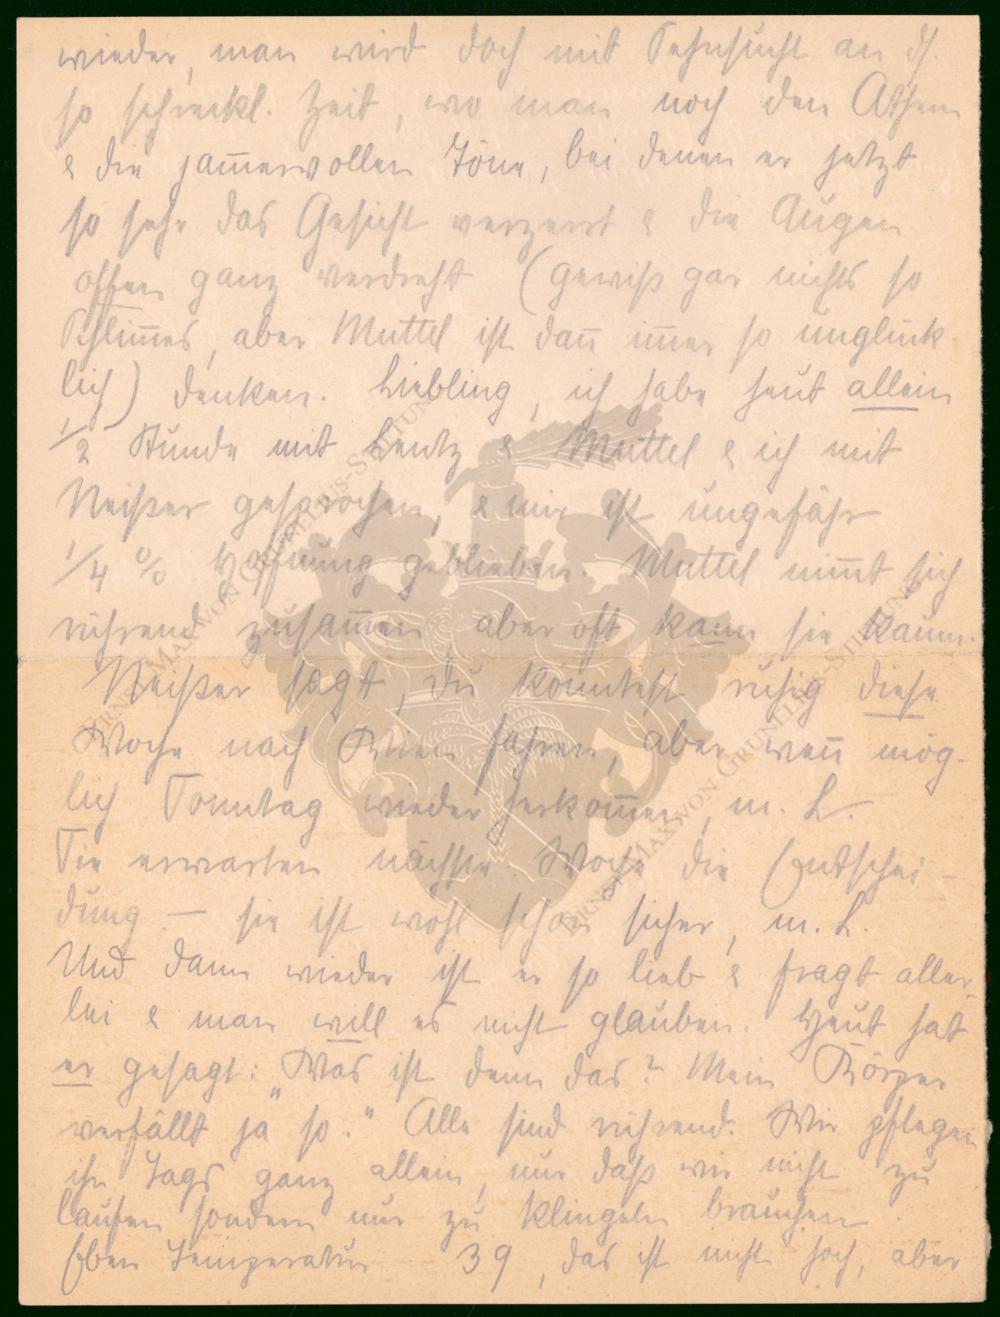 wieder, man wird doch mit Sehnsucht an d.
so schreckl. Zeit, wo man noch den Athem
& die jam̅ervollen Töne, bei denen er jetzt
so sehr das Gesicht verzerrt & die Augen
offen ganz verdreht (gewiß gar nichts so
Schlim̅es, aber Muttel ist dan̅ im̅er so unglück-
lich) denken. Liebling, ich habe heut allein
1/2 Stunde mit Lentz & Muttel & ich mit
Neißer gesprochen, & mir ist ungefähr
1/4 % Hoffnung geblieben. Muttel nim̅t sich
rührend zusam̅en aber oft kann sie kaum.
Neißer sagt, du könntest ruhig diese
Woche nach Wien fahren, aber wen̅ mög-
lich Sonntag wieder herkom̅en, m. L.
Sie erwarten nächste Woche die Entschei-
dung — sie ist wohl schon sicher, m. L.
Und dann wieder ist er so lieb & fragt aller-
lei & man will es nicht glauben. Heut hat
er gesagt: „Was ist denn das? Mein Körper
verfällt ja so." Alle sind rührend. Wir pflegen
ihn Tags ganz allein, nur daß wir nicht zu
laufen sondern nur zu klingeln brauchen.
Eben Temperatur 39, das ist nicht hoch, aber
ERNST MAX VON GRUNELIUS-STIFTUNG
ERNST MAX VON GRUNELIUS-STIFTUNG